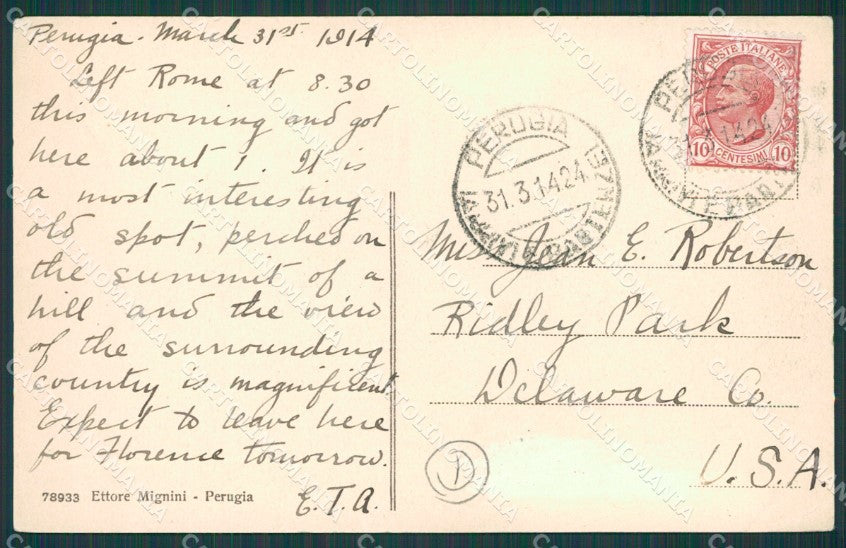 Perugia. March 31st 1914
Left Rome at 8.30
this morning and got
here about 1. It is
a most interesting
old spot, perched on
the summit of a
hill and the view
of the surrounding
country is magnificent
Expect to leave here
for Florence tomorrow.
E.T.A.
78933 Ettore Mignini - Perugia
POSTE ITALIANE
10 CENTESIMI 10
PERUGIA
31.3.14 24
(ARRIVI E PARTENZE)
PERUGIA
31.3.14 24
(ARRIVI E PART
Miss Jean E. Robertson
Ridley Park
Delaware Co.
U.S.A.
CARTOLINOMANIA